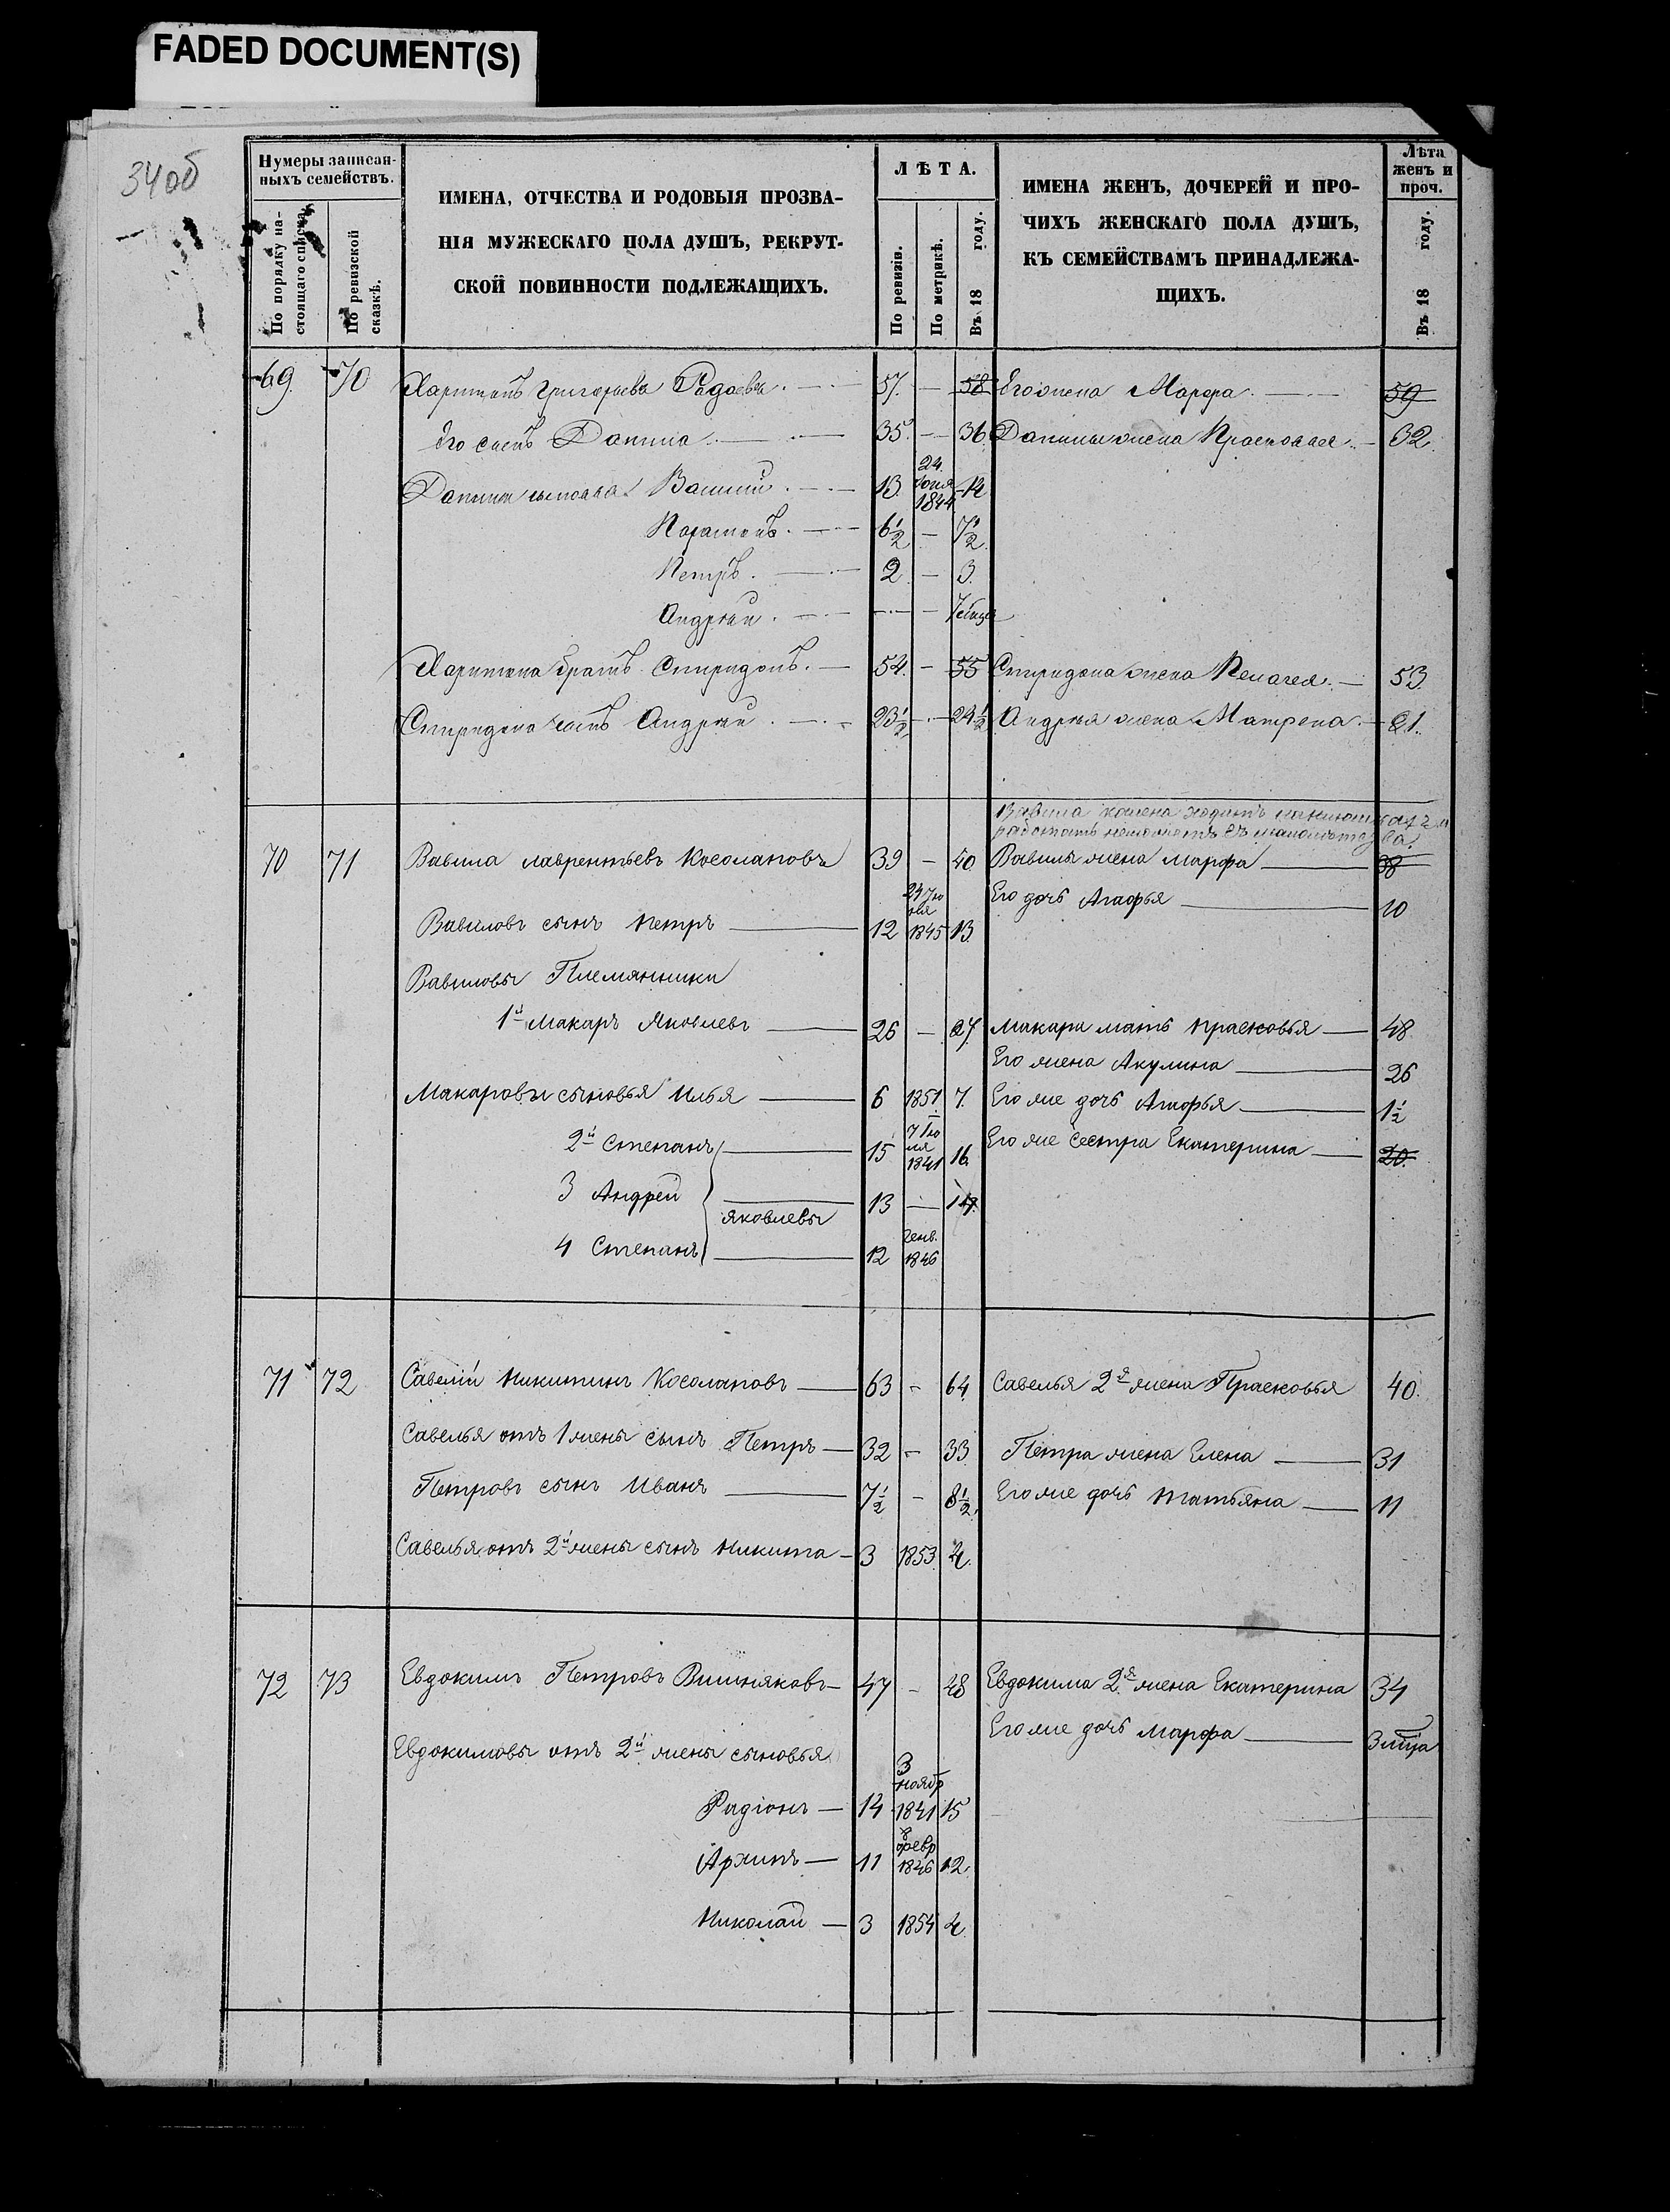 FADED DOCUMENT(S)
34об
Нумеры записан-
ныхъ семействъ.
По порядку на-
стоящаго списка
По ревизской
сказкѣ.
ИМЕНА, ОТЧЕСТВА И РОДОВЫЯ ПРОЗВА-
НІЯ МУЖЕСКАГО ПОЛА ДУШЪ, РЕКРУТ-
СКОЙ ПОВИННОСТИ ПОДЛЕЖАЩИХЪ.
ЛѢТА.
По ревизіи.
По метрикѣ.
Въ 18 году.
ИМЕНА ЖЕНЪ, ДОЧЕРЕЙ И ПРО-
ЧИХЪ ЖЕНСКАГО ПОЛА ДУШЪ,
КЪ СЕМЕЙСТВАМЪ ПРИНАДЛЕЖА-
ЩИХЪ.
Лѣта
женъ и
проч.
Въ 18 году.
69. 70 Харитонъ Григорьевъ 57. — 58 Его жена Марфа. 59
Его сынъ Данила. 35. — 36 Данилы жена Прасковья 32.
Данилы сыновья Василий. 13. 24 Іюня 1844 14
Харитонъ. 6½ — 7½
Петръ. 2 — 3.
Андрей. — —
Харитона братъ Спиридонъ. 54. — 55 Спиридона жена Пелагея. 53.
Спиридона сынъ Андрей. 23½ — 24½ Андрея жена Матрена. 21.
Вавила
работать
70 71 Вавила Лаврентьевъ Косолаповъ 39 — 40 Вавилы жена Марфа 38
Его дочь Агафья 10
Вавиловъ сынъ Петръ 12 1845 13.
Вавиловы Племянники
1й Макаръ Яковлевъ 26 — 27. Макара мать Прасковья 48
Его жена Акулина 26
Макаровы сыновья Илья 6 1851 7. Его же дочь Агафья 1½
2й Степанъ 15 7 Іюля 1841 16. Его же сестра Екатерина 20.
3 Андрей 13 — 14.
Яковлевы
4 Степанъ 12 Генв. 1846
71 72 Савелій Никитинъ Косолаповъ 63 - 64 Савелья 2я жена Прасковья 40.
Савелья отъ 1 жены сынъ Петръ 32 - 33. Петра жена Елена 31
Петровъ сынъ Иванъ 7½ - 8½ Его же дочь Татьяна 11
Савелья отъ 2й жены сынъ Никита 3 1853 4.
72 73 Евдокимъ Петровъ Вишняковъ 47 - 48 Евдокима 2я жена Екатерина 34
Его же дочь Марфа 3 мца
Евдокимовы отъ 2й жены сыновья
Радіонъ 14 3 ноябр 1841 15
Архипъ 11 февр 1846 12.
Николай 3 1854 4.